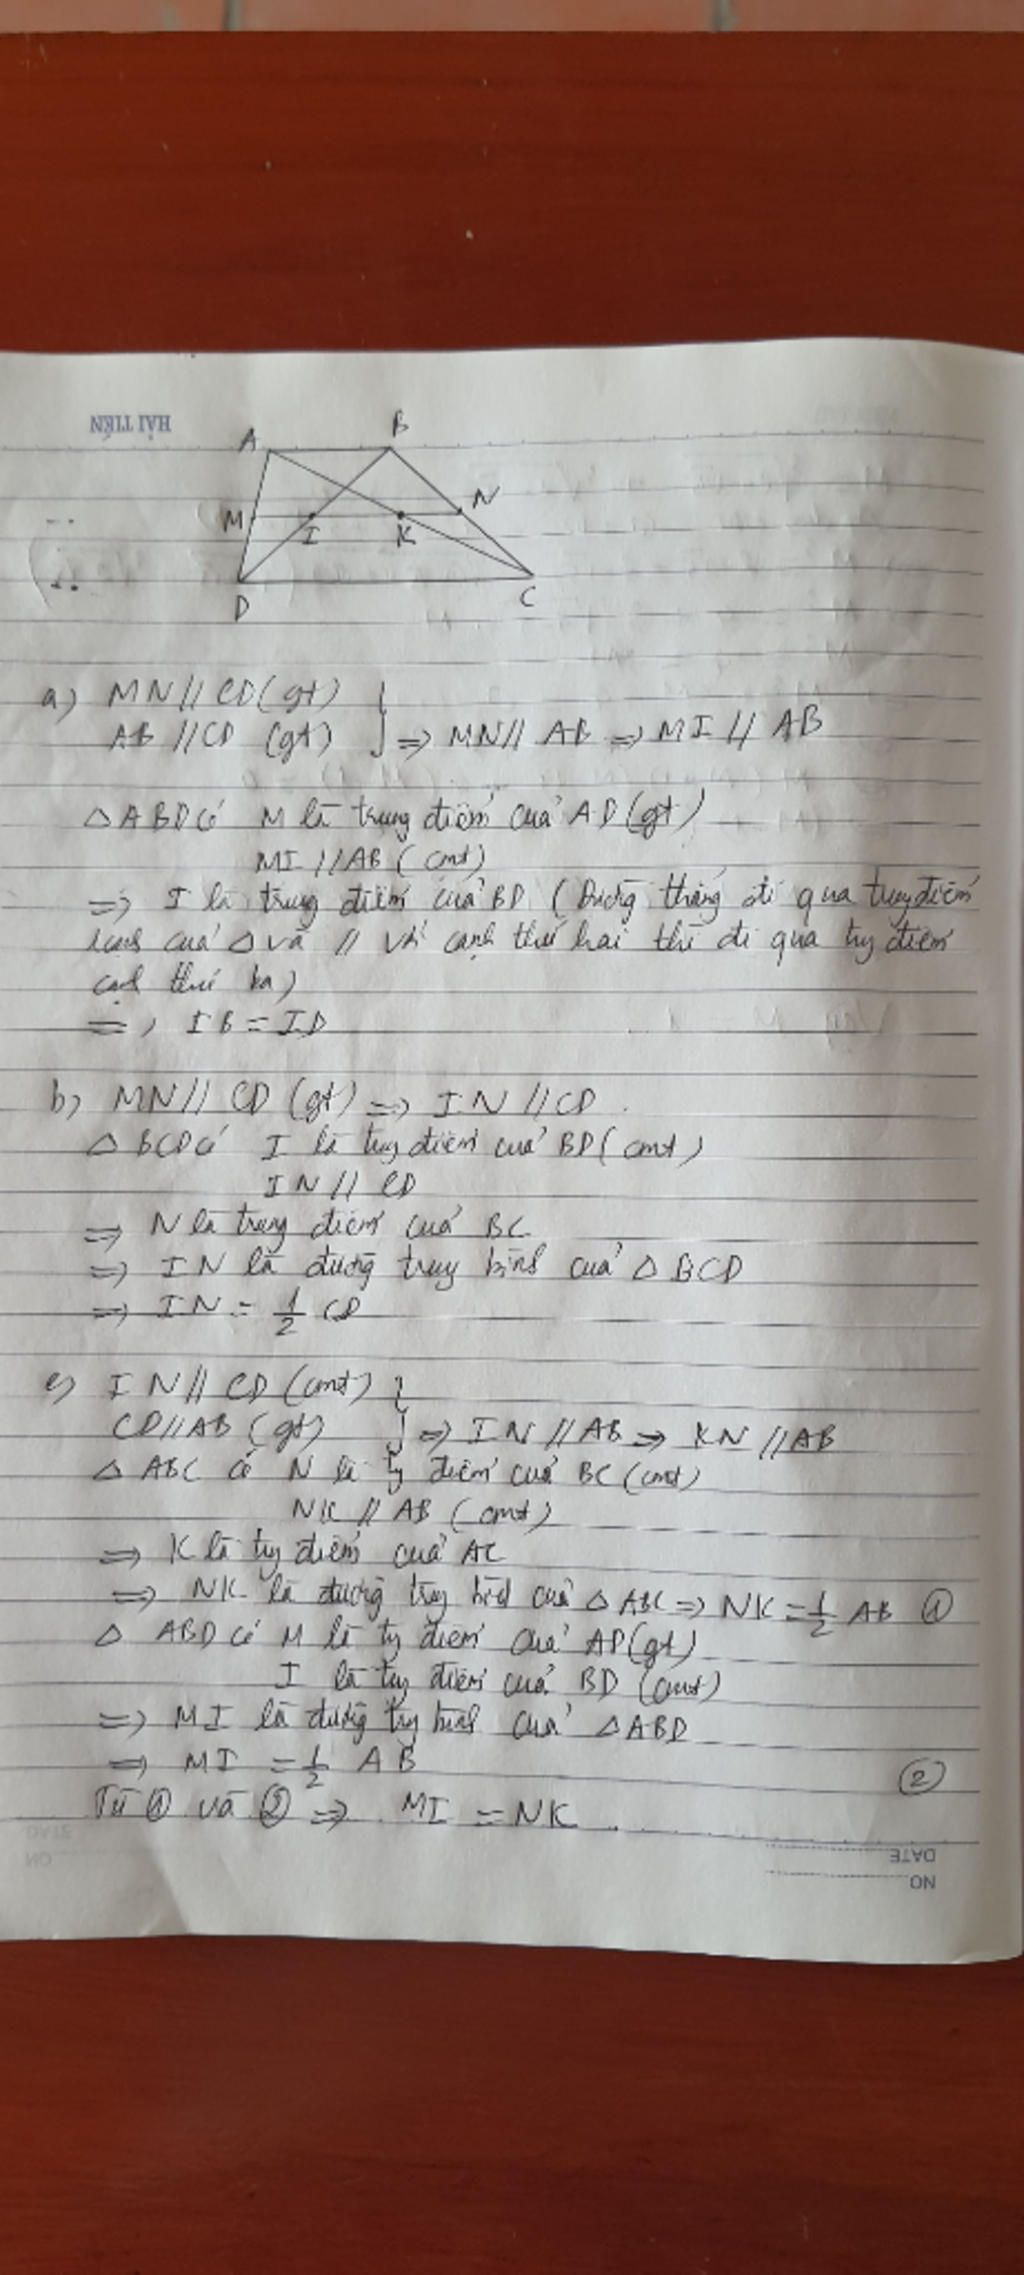 HẢI TIẾN
A B
M I K N
D C
a) MN // CD (gt) }
AB // CD (gt) } => MN // AB => MI // AB
△ ABD có M là trung điểm của AD (gt)
MI // AB (cmt)
=> I là trung điểm của BD (Đường thẳng đi qua trung điểm
1 cạnh của △ và // với cạnh thứ hai thì đi qua tr điểm
cạnh thứ ba)
=> IB = ID
b) MN // CD (gt) => IN // CD.
△ BCD có I là trg điểm của BD (cmt)
IN // CD
=> N là trung điểm của BC
=> IN là đường trung bình của △ BCD
=> IN = 1/2 CD
c) IN // CD (cmt) }
CD // AB (gt) } => IN // AB => KN // AB
△ ABC có N là tr điểm của BC (cmt)
NK // AB (cmt)
=> K là trg điểm của AC
=> NK là đường trg bình của △ ABC => NK = 1/2 AB ①
△ ABD có M là tr điểm của AD (gt)
I là trg điểm của BD (cmt)
=> MI là đường trg bình của △ ABD
=> MI = 1/2 AB ②
Từ ① và ② => MI = NK.
DATE
NO
DATE
NO